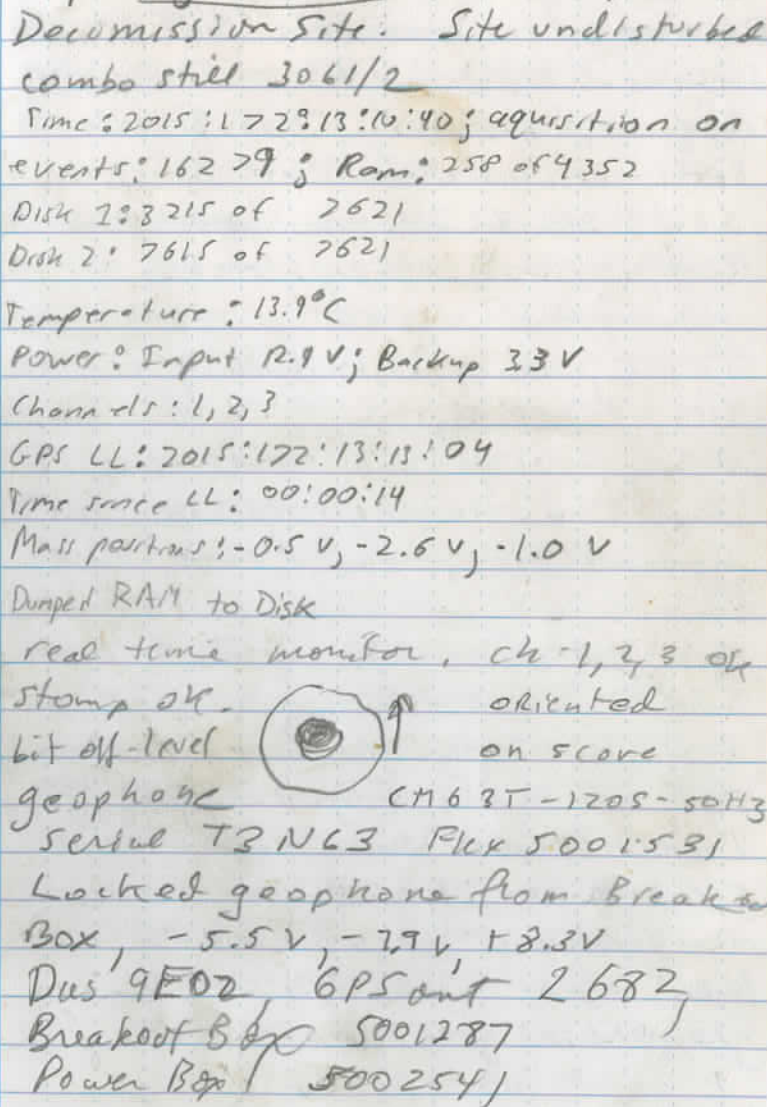 Decomission Site. Site undisturbed
combo still 3061/2
Time: 2015:172:13:10:40; aquisition on
events: 16279; Ram: 258 of 4352
Disk 1: 3215 of 7621
Disk 2: 7615 of 7621
Temperature: 13.9°C
Power: Input 12.9 V; Backup 3.3 V
Channels: 1, 2, 3
GPS LL: 2015:172:13:13:04
Time since LL: 00:00:14
Mass positions: -0.5 V, -2.6 V, -1.0 V
Dumped RAM to Disk
real time monitor, ch 1, 2, 3 ok
stomp ok. oriented
bit off-level on score
geophone CM63T-120S-50Hz
serial T3N63 Flex 5001531
Locked geophone from
Box, -5.5 V, -7.9 V, +8.3 V
Das 9E02, GPS ant 2682,
Breakout Box 5001287
Power Box 5002541